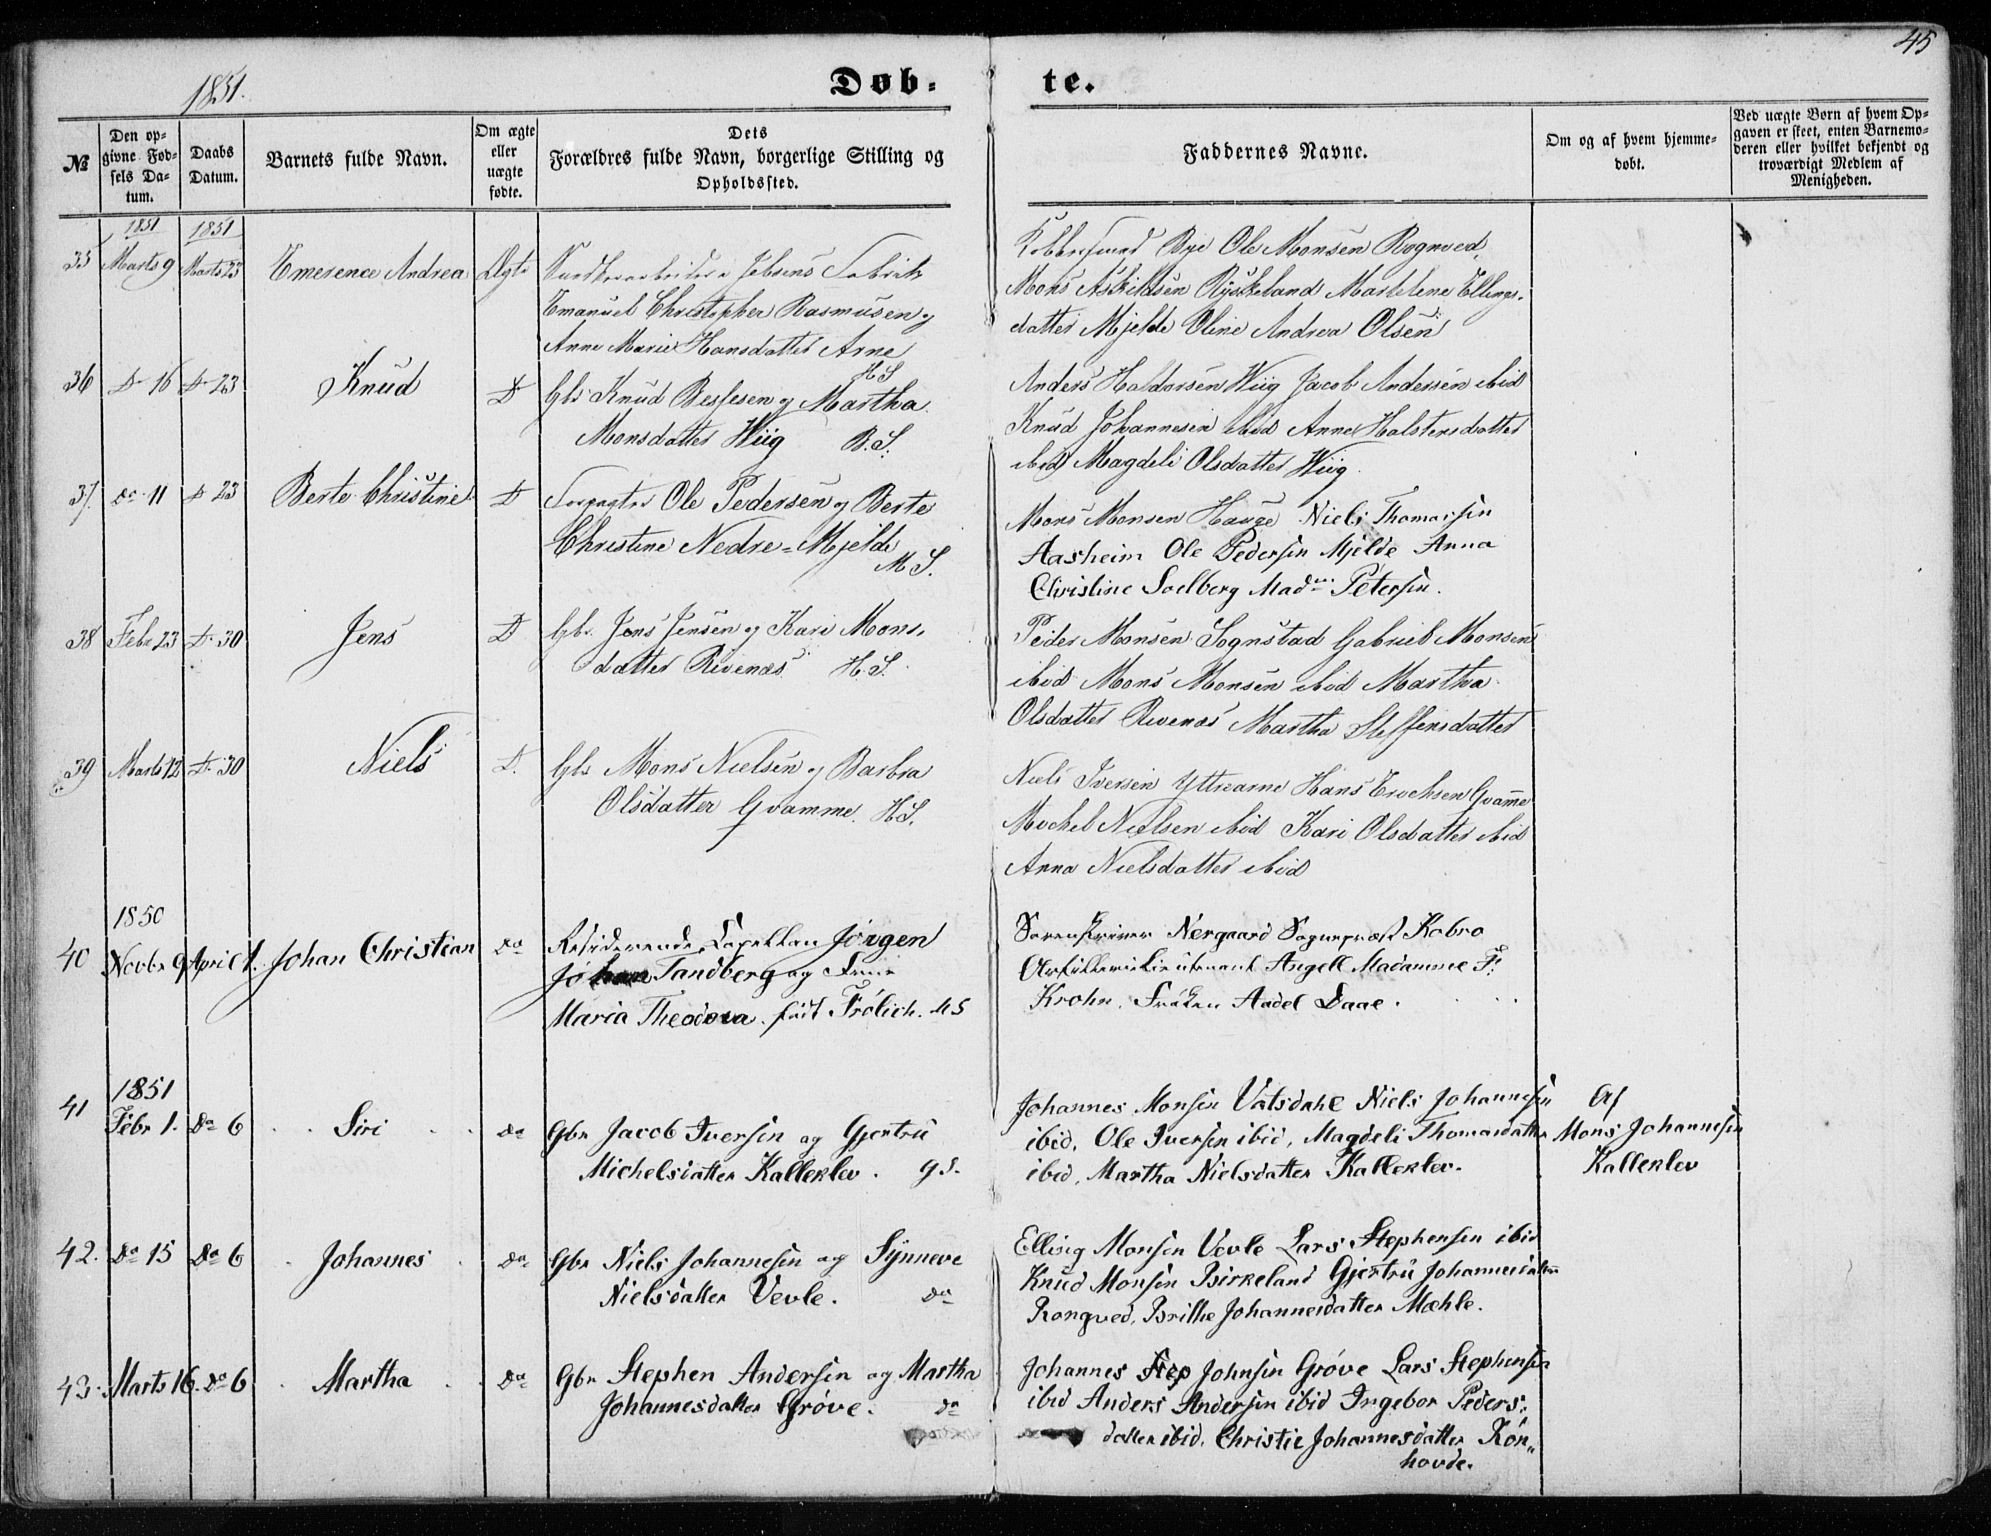 45
1851.
Døb-
te.
№
Den op-
givne Fød-
sels Da-
tum.
Daabs
Datum.
Barnets fulde Navn.
Om ægte
eller
uægte
fødte.
Dets
Forældres fulde Navn, borgerlige Stilling og
Opholdssted.
Faddernes Navne.
Om og af hvem hjemme-
døbt.
Ved uægte Børn af hvem Op-
gaven er skeet, enten Barnemo-
deren eller hvilket bekjendt og
troværdigt Medlem af
Menigheden.
1851 1851
35 Marts 9 Marts 23 Emerence Andrea Ægte
Jebsens Fabrik
Emanuel Christopher Rasmusen og
Anne Marie Hansdatter Arne
H S
Rye Ole Monsen Rognved,
Mons Askildsen Ryskeland Marielene Ellings-
datter Mjelde Oline Andrea Olsen
36 D 16 D 23 Knud D Gbr Knud Besfesen og Martha
Monsdatter Wiig B.S.
Anders Haldorsen Wiig Jacob Andersen ibid
Knud Johannesen ibid Anne Halstensdatter
ibid Magdeli Olsdatter Wiig.
37. do 11 D 23 Berte Christine D Forpagter Ole Pedersen og Berte
Christine Nedre-Mjelde
M S.
Mons Monsen Hauge Niels Thomassen
Aasheim Ole Pedersen Mjelde Anna
Christine Soelberg Madm Petersen.
38 Febr 23 D 30 Jens D Gbr. Jens Jensen og Kari Mons-
datter Revenæs H.S.
Peder Monsen Sognstad Gabriel Monsen
ibid Mons Monsen ibid Martha
Olsdatter Revenæs Martha Steffensdatter
39 Marts 12 D. 30 Niels D. Gbr Mons Nielsen og Barbra
Olsdatter Gvamme. H S.
Niels Iversen Yttrearne Hans Erichsen Gvamme
Michel Nielsen ibid Kari Olsdatter ibid
Anna Nielsdatter ibid
1850
40 Novbr 9 April 1. Johan Christian Do Residerende Capellan Jørgen
Johan Tandberg og
Maria Theodora født Frølich. HS
Sorenskriver Nergaard Sognepræst Kobro
Artillerielieutenant Angell Madamme F.
Krohn. Frøken Aadel Daae.
1851
41 Febr 1. Do 6 Siri Do Gbr Jacob Iversen og Gjertru
Michelsdatter Kalleklev. g s.
Johannes Monsen Vatsdahl Niels Johannesen
ibid, Ole Iversen ibid, Magdeli Thomasdatter
ibid, Martha Nielsdatter Kalleklev.
Af
Mons Johannesen
Kalleklev
42. Do 15 Do 6 Johannes Do Gbr Niels Johannesen og Synneve
Nielsdatter Vevle. Do
Elling Monsen Vevle Lars Stephensen ibid
Knud Monsen Birkeland Gjertru Johannesdatter
Rongved, Brithe Johannesdatter Mæhle.
43. Marts 16. Do 6 Martha Do Gbr Stephen Andersen og Martha
Johannesdatter Grøve. Do
Johannes Step Johnsen Grøve Lars Stephensen
ibid Anders Andersen ibid Ingebor Peders-
datter ibid. Christie Johannesdatter Røn-
hovde.